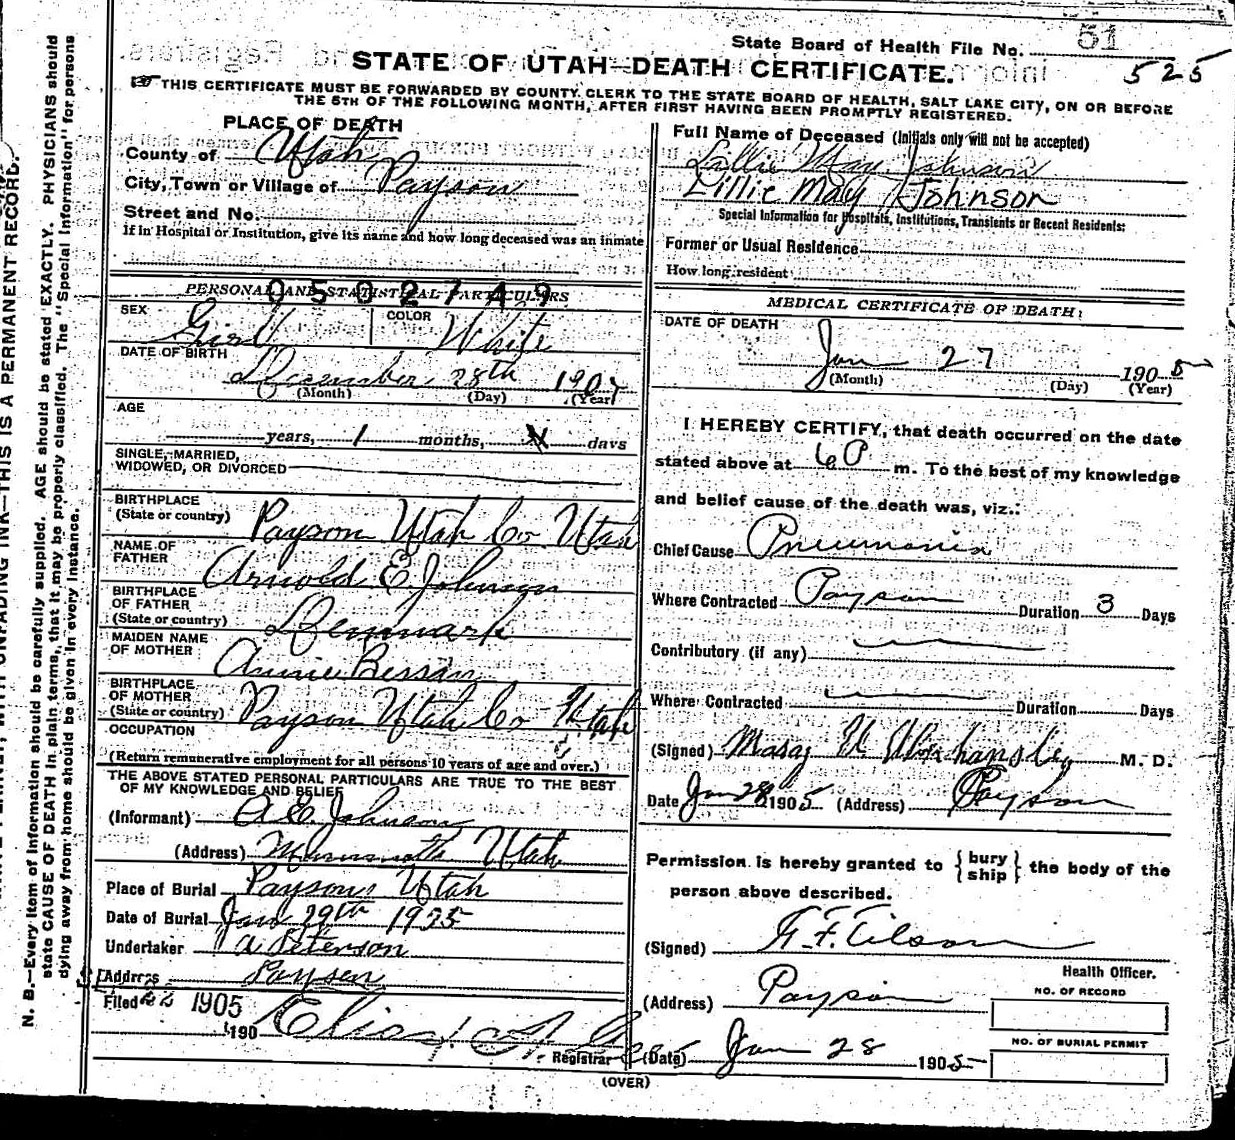 State Board of Health File No. 51
525
STATE OF UTAH—DEATH CERTIFICATE.
THIS CERTIFICATE MUST BE FORWARDED BY COUNTY CLERK TO THE STATE BOARD OF HEALTH, SALT LAKE CITY, ON OR BEFORE
THE 5TH OF THE FOLLOWING MONTH, AFTER FIRST HAVING BEEN PROMPTLY REGISTERED.
PLACE OF DEATH
County of Utah
City, Town or Village of Payson
Street and No.
If in Hospital or Institution, give its name and how long deceased was an inmate
PERSONAL AND STATISTICAL PARTICULARS
0502749
SEX Girl COLOR White
DATE OF BIRTH
December 28th 190
(Month) (Day) (Year)
AGE
years, 1 months, days
SINGLE, MARRIED,
WIDOWED, OR DIVORCED
BIRTHPLACE
(State or country) Payson Utah Co. Utah
NAME OF
FATHER Arnold E Johnson
BIRTHPLACE
OF FATHER
(State or country) Denmark
MAIDEN NAME
OF MOTHER Annie
BIRTHPLACE
OF MOTHER
(State or country) Payson Utah Co Utah
OCCUPATION
(Return remunerative employment for all persons 10 years of age and over.)
THE ABOVE STATED PERSONAL PARTICULARS ARE TRUE TO THE BEST
OF MY KNOWLEDGE AND BELIEF
(Informant) A E Johnson
(Address) Mammoth Utah
Place of Burial Payson, Utah
Date of Burial Jan 29th 1905
Undertaker A Peterson
Address Payson
Filed 1905
190
Registrar
Full Name of Deceased (Initials only will not be accepted)
Lillie May Johnson
Lillie May Johnson
Special Information for Hospitals, Institutions, Transients or Recent Residents:
Former or Usual Residence
How long resident
MEDICAL CERTIFICATE OF DEATH:
DATE OF DEATH
Jan 27 1905
(Month) (Day) (Year)
I HEREBY CERTIFY, that death occurred on the date
stated above at 6 P m. To the best of my knowledge
and belief cause of the death was, viz.:
Chief Cause Pneumonia
Where Contracted Payson Duration 3 Days
Contributory (if any)
Where Contracted Duration Days
(Signed) M. D.
Date Jan 28 1905 (Address) Payson
Permission is hereby granted to { bury ship } the body of the
person above described.
(Signed)
Health Officer.
(Address) Payson
NO. OF RECORD
NO. OF BURIAL PERMIT
(Date) Jan 28 1905
(OVER)
N. B.—Every item of information should be carefully supplied. AGE should be stated EXACTLY. PHYSICIANS should
state CAUSE OF DEATH in plain terms, that it may be properly classified. The "Special Information" for persons
dying away from home should be given in every instance.
UNFADING INK—THIS IS A PERMANENT RECORD.